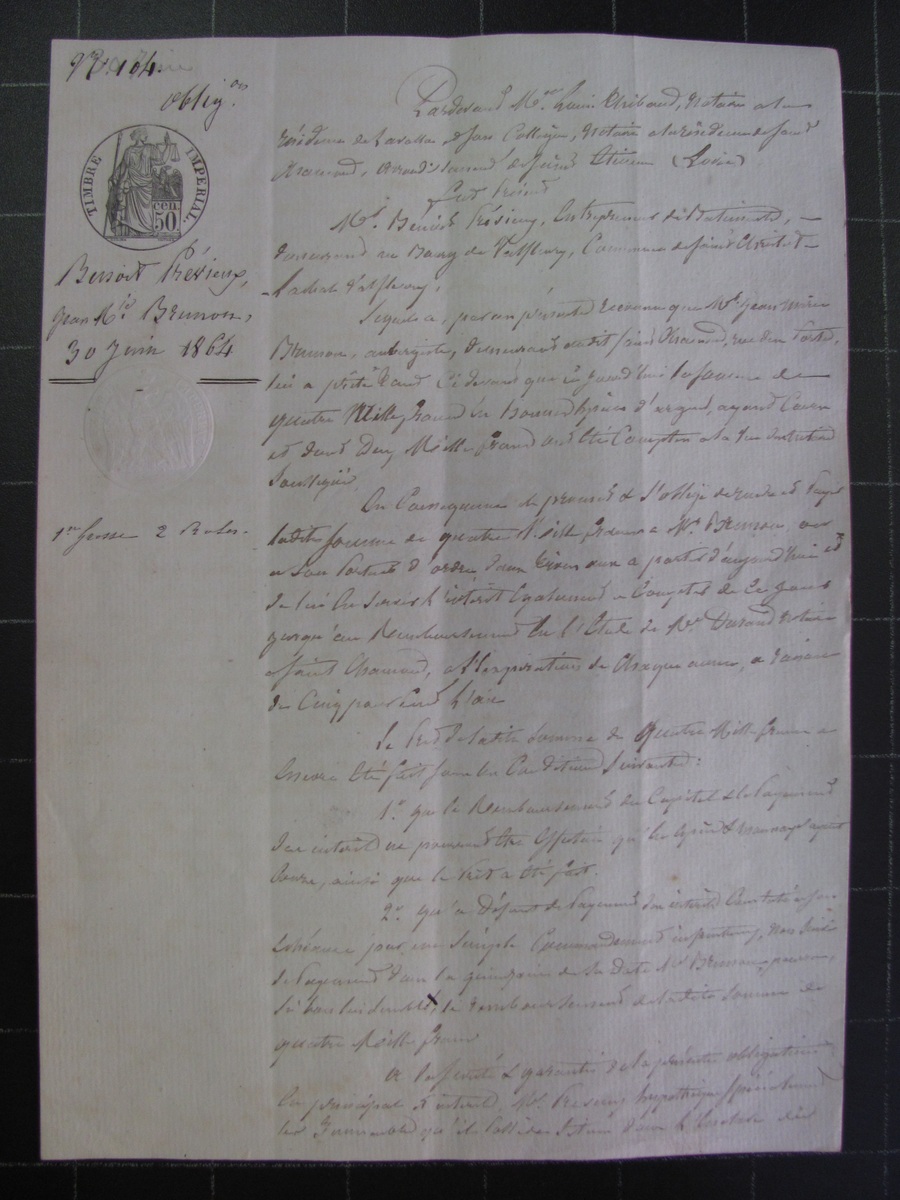 N° 104.
oblig.on
TIMBRE IMPERIAL
50 cen.
Benoit Prévieux,
Jean M.ie Brunon,
30 Juin 1864
1re Grosse 2 Roles.
Pardevant M.e Louis Thibaud, Notaire à la
résidence de Lavalla et son Collègue, Notaire à la résidence de Saint
Chamond, arrondissement de Saint Etienne (Loire)
fut présent
M.r Benoit Prévieux, Entrepreneur de Batiments,
demeurant au Bourg de Valfleury, Commune de Saint
Valfleury,
Lequel a, par ces présentes reconnu que M.r Jean Marie
Brunon, aubergiste, demeurant audit Saint Chamond, rue
lui a prêté tant ci devant que ce jourd'hui la somme de
quatre Mille francs en bonnes espèces d'argent, ayant cours
et dont deux Mille francs ont été comptés à la vue des notaires
soussignés
En Conséquence le premier s'oblige de rendre et payer
ladite somme de quatre Mille francs à M.r Brunon, ou
à son porteur d'ordre dans ans à partir d'aujourd'hui et
de lui en servir l'intérêt également à compter de ce jour
jusqu'au Remboursement en l'Etude de M.e Durand Notaire
à Saint Chamond, à l'expiration de chaque année, à raison
de cinq pour cent l'an
Le Prêt de ladite somme de quatre Mille francs a
encore été fait sous les Conditions Suivantes:
1° que le Remboursement du Capital et le Payement
des intérêts ne pourront être effectués qu'en espèces et monnayes ayant
cours, ainsi que le Prêt a été fait.
2° qu'à Défaut de Payement des intérêts
échéance par un simple Commandement infructueux, non suivi
de Payement dans la quinzaine de sa date M.r Brunon pourra,
si bon lui semble, le remboursement de ladite somme de
quatre Mille francs
A la sureté et garantie de la présente obligation
en principal et intérêts, M.r Prévieux hypothèque spécialement
les Immeubles qu'il possède situés dans